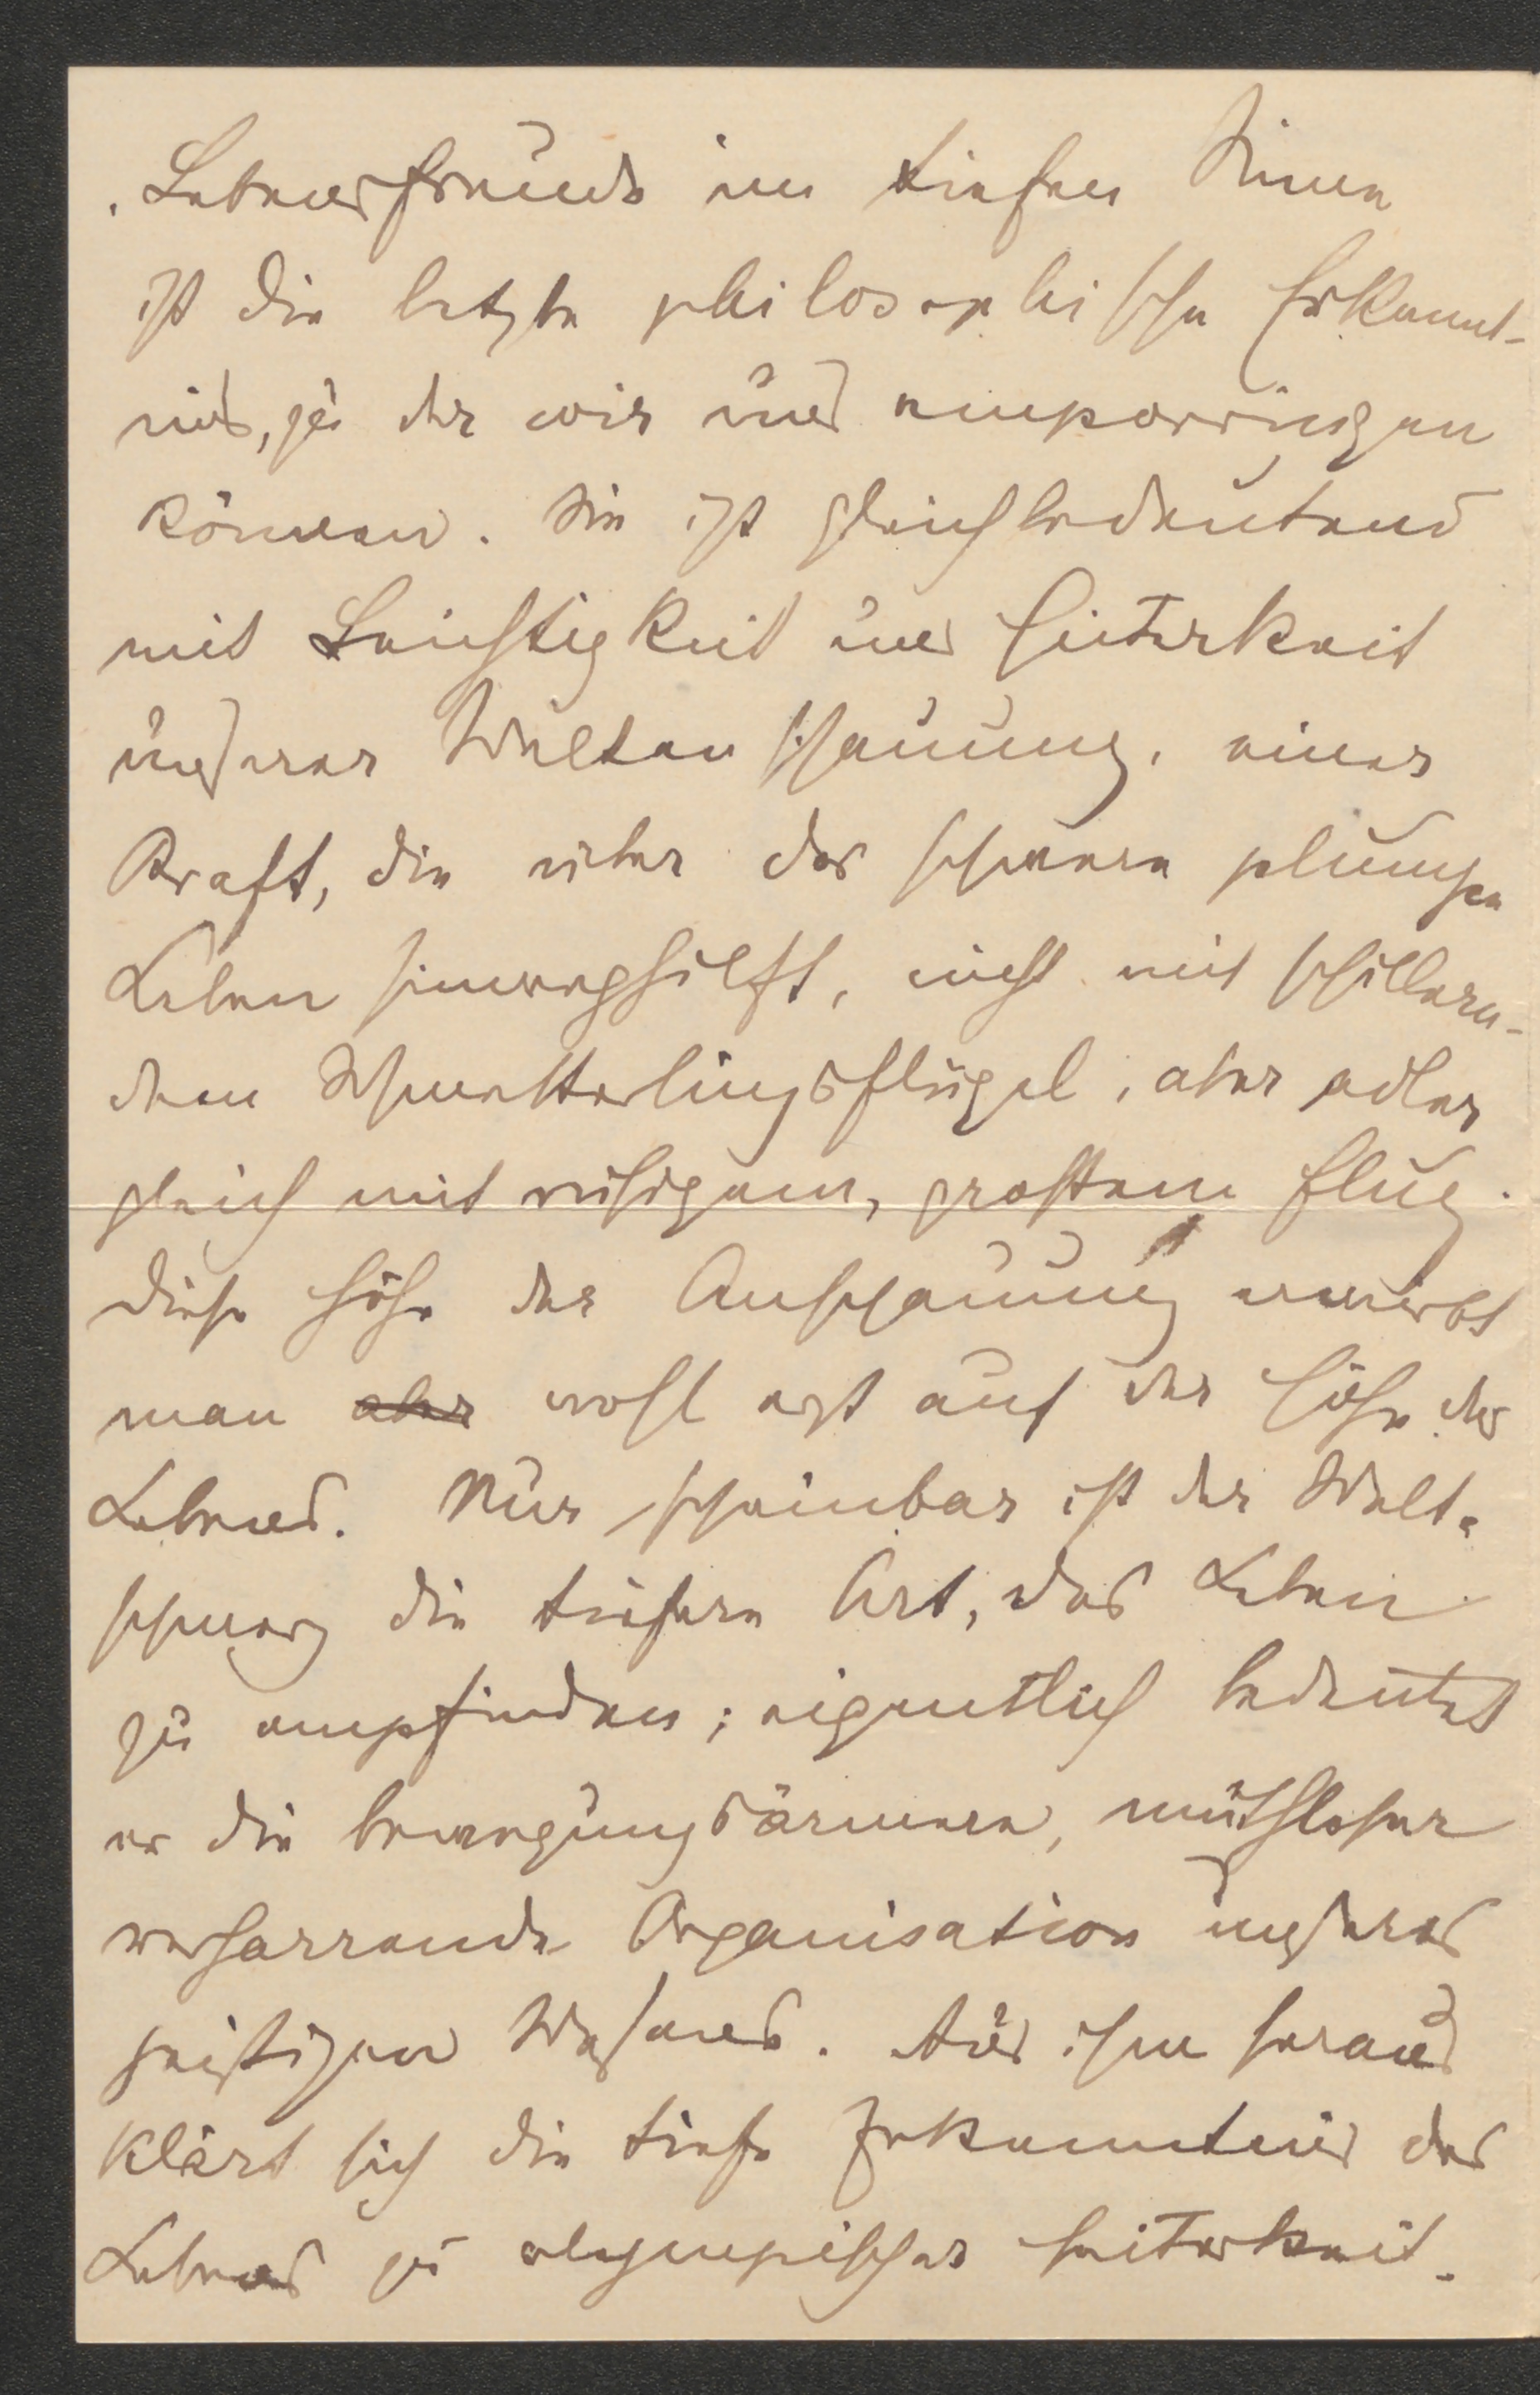 Lebensfreude im tiefen Sinne
ist die letzte philosophische Erkennt-
nis, zu der wir uns emporringen
können. Sie ist gleichbedeutend
mit Leichtigkeit und Heiterkeit
unserer Weltanschauung, einer
Kraft, die über das schwere plumpe
Leben hinweghilft, nicht mit schillern-
dem Schmetterlingsflügel, aber adler
gleich mit ruhigem, großem Flug.
Diese Höhe der Anschauung erwirbt
man aber wohl erst auf der Höhe des
Lebens. Nur scheinbar ist der Welt-
schmerz die tiefere Art, das Leben
zu empfinden; eigentlich bedeutet
er die bewegungsärmere, muthloser
verharrende Organisation unseres
geistigen Wesens. Aus ihm heraus
klärt sich die tiefe Erkenntnis des
Lebens zu olympischer Heiterkeit.